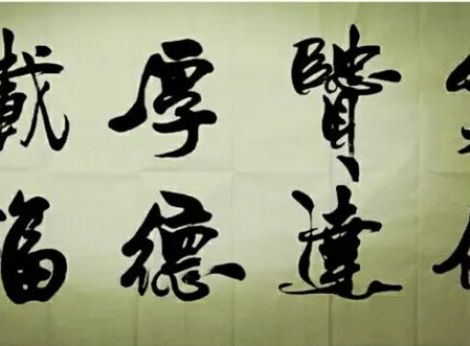 賢達
厚德
載福